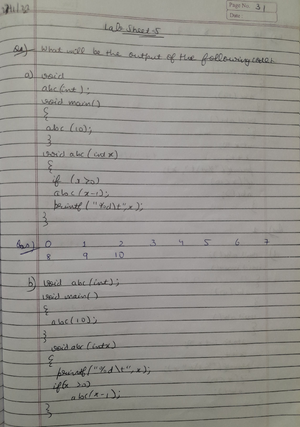 Page No. 31
Date
Lab Sheet-5
Q1) - What will be the output of the following code.
a) void
abc(int);
void main()
{
abc (10);
}
void abc (int x)
{
if (x>0)
abc (x-1);
printf ("%d\t", x);
}
Ans) 0 1 2 3 4 5 6 7
8 9 10
b) void abc (int);
void main()
{
abc (10);
}
void abc (int x)
{
printf ("%d\t", x);
if(x >0)
abc(x-1);
}